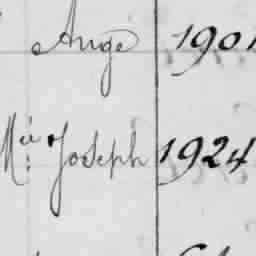 Ange 1901
Mii Joseph 1924